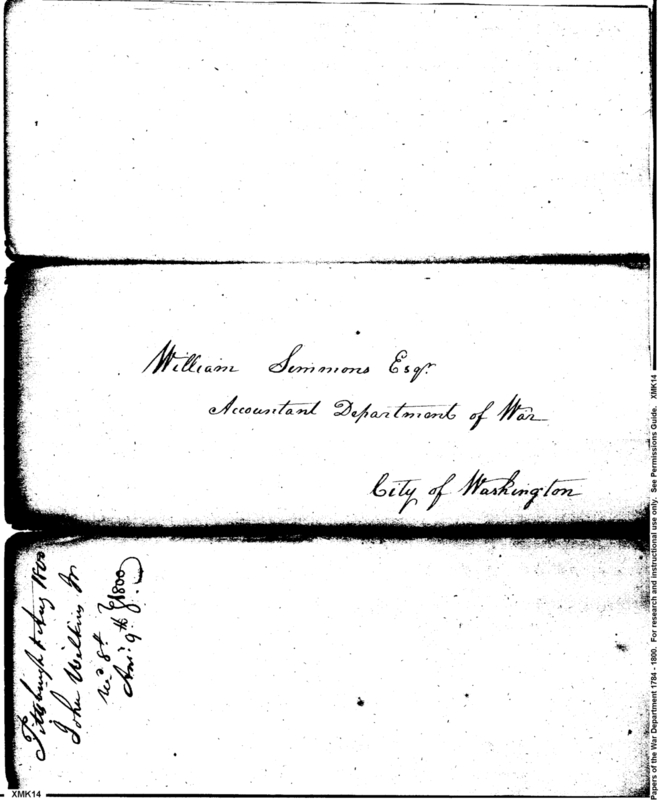 William Simmons Esqr.
Accountant Department of War
City of Washington
Pittsburgh Augt 1800
John Wilkins Jr
Recd 8th
Ansd 9th 1800
XMK14
Papers of the War Department 1784 - 1800. For research and instructional use only. See Permissions Guide. XMK14